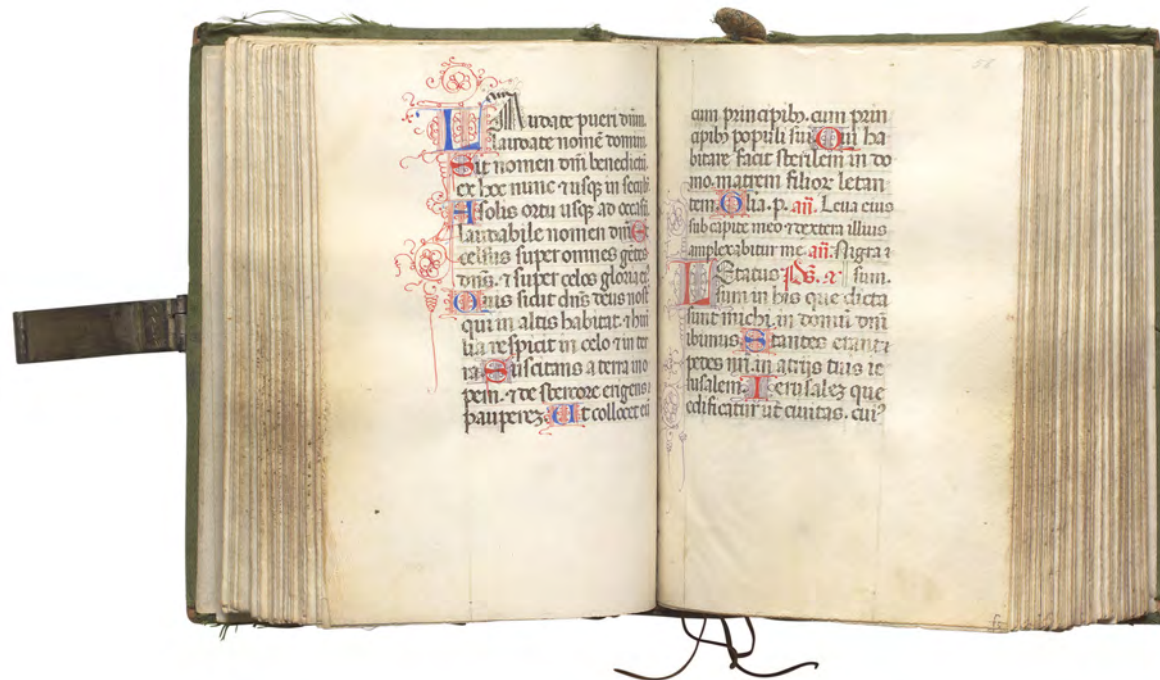 Laudate pueri dñm.
laudate nomẽ domini
Sit nomen dñi benedictũ.
ex hoc nunc ⁊ usqꝫ in seculũ.
A solis ortu usqꝫ ad occasũ.
laudabile nomen dñi. E
celsus super omnes gẽtes
dñs. ⁊ super celos gloria eiꝰ
Quis sicut dñs deus nost̃
qui in altis habitat. ⁊ humi
lia respicit in celo ⁊ in ter
ra Suscitans a terra ino
pem. ⁊ de stercore erigens
paupereʒ. Ut collocet eũ
58
cum principibꝫ. cum prin
cipibꝫ populi sui Qui ha
bitare facit sterilem in do
mo. matrem filioꝝ letan
tem. Glia. p. añ. Leva eius
sub capite meo ⁊ dextera illius
amplexabitur me añ. Nigra
Letatus p̃s. sum.
sum in his que dicta
sunt michi. in domũ dñi
ibimus Stantes erant
pedes nr̃i. in atrijs tuis ie
rusalem. Ierusaleʒ que
edificatur ut civitas. cuiꝰ